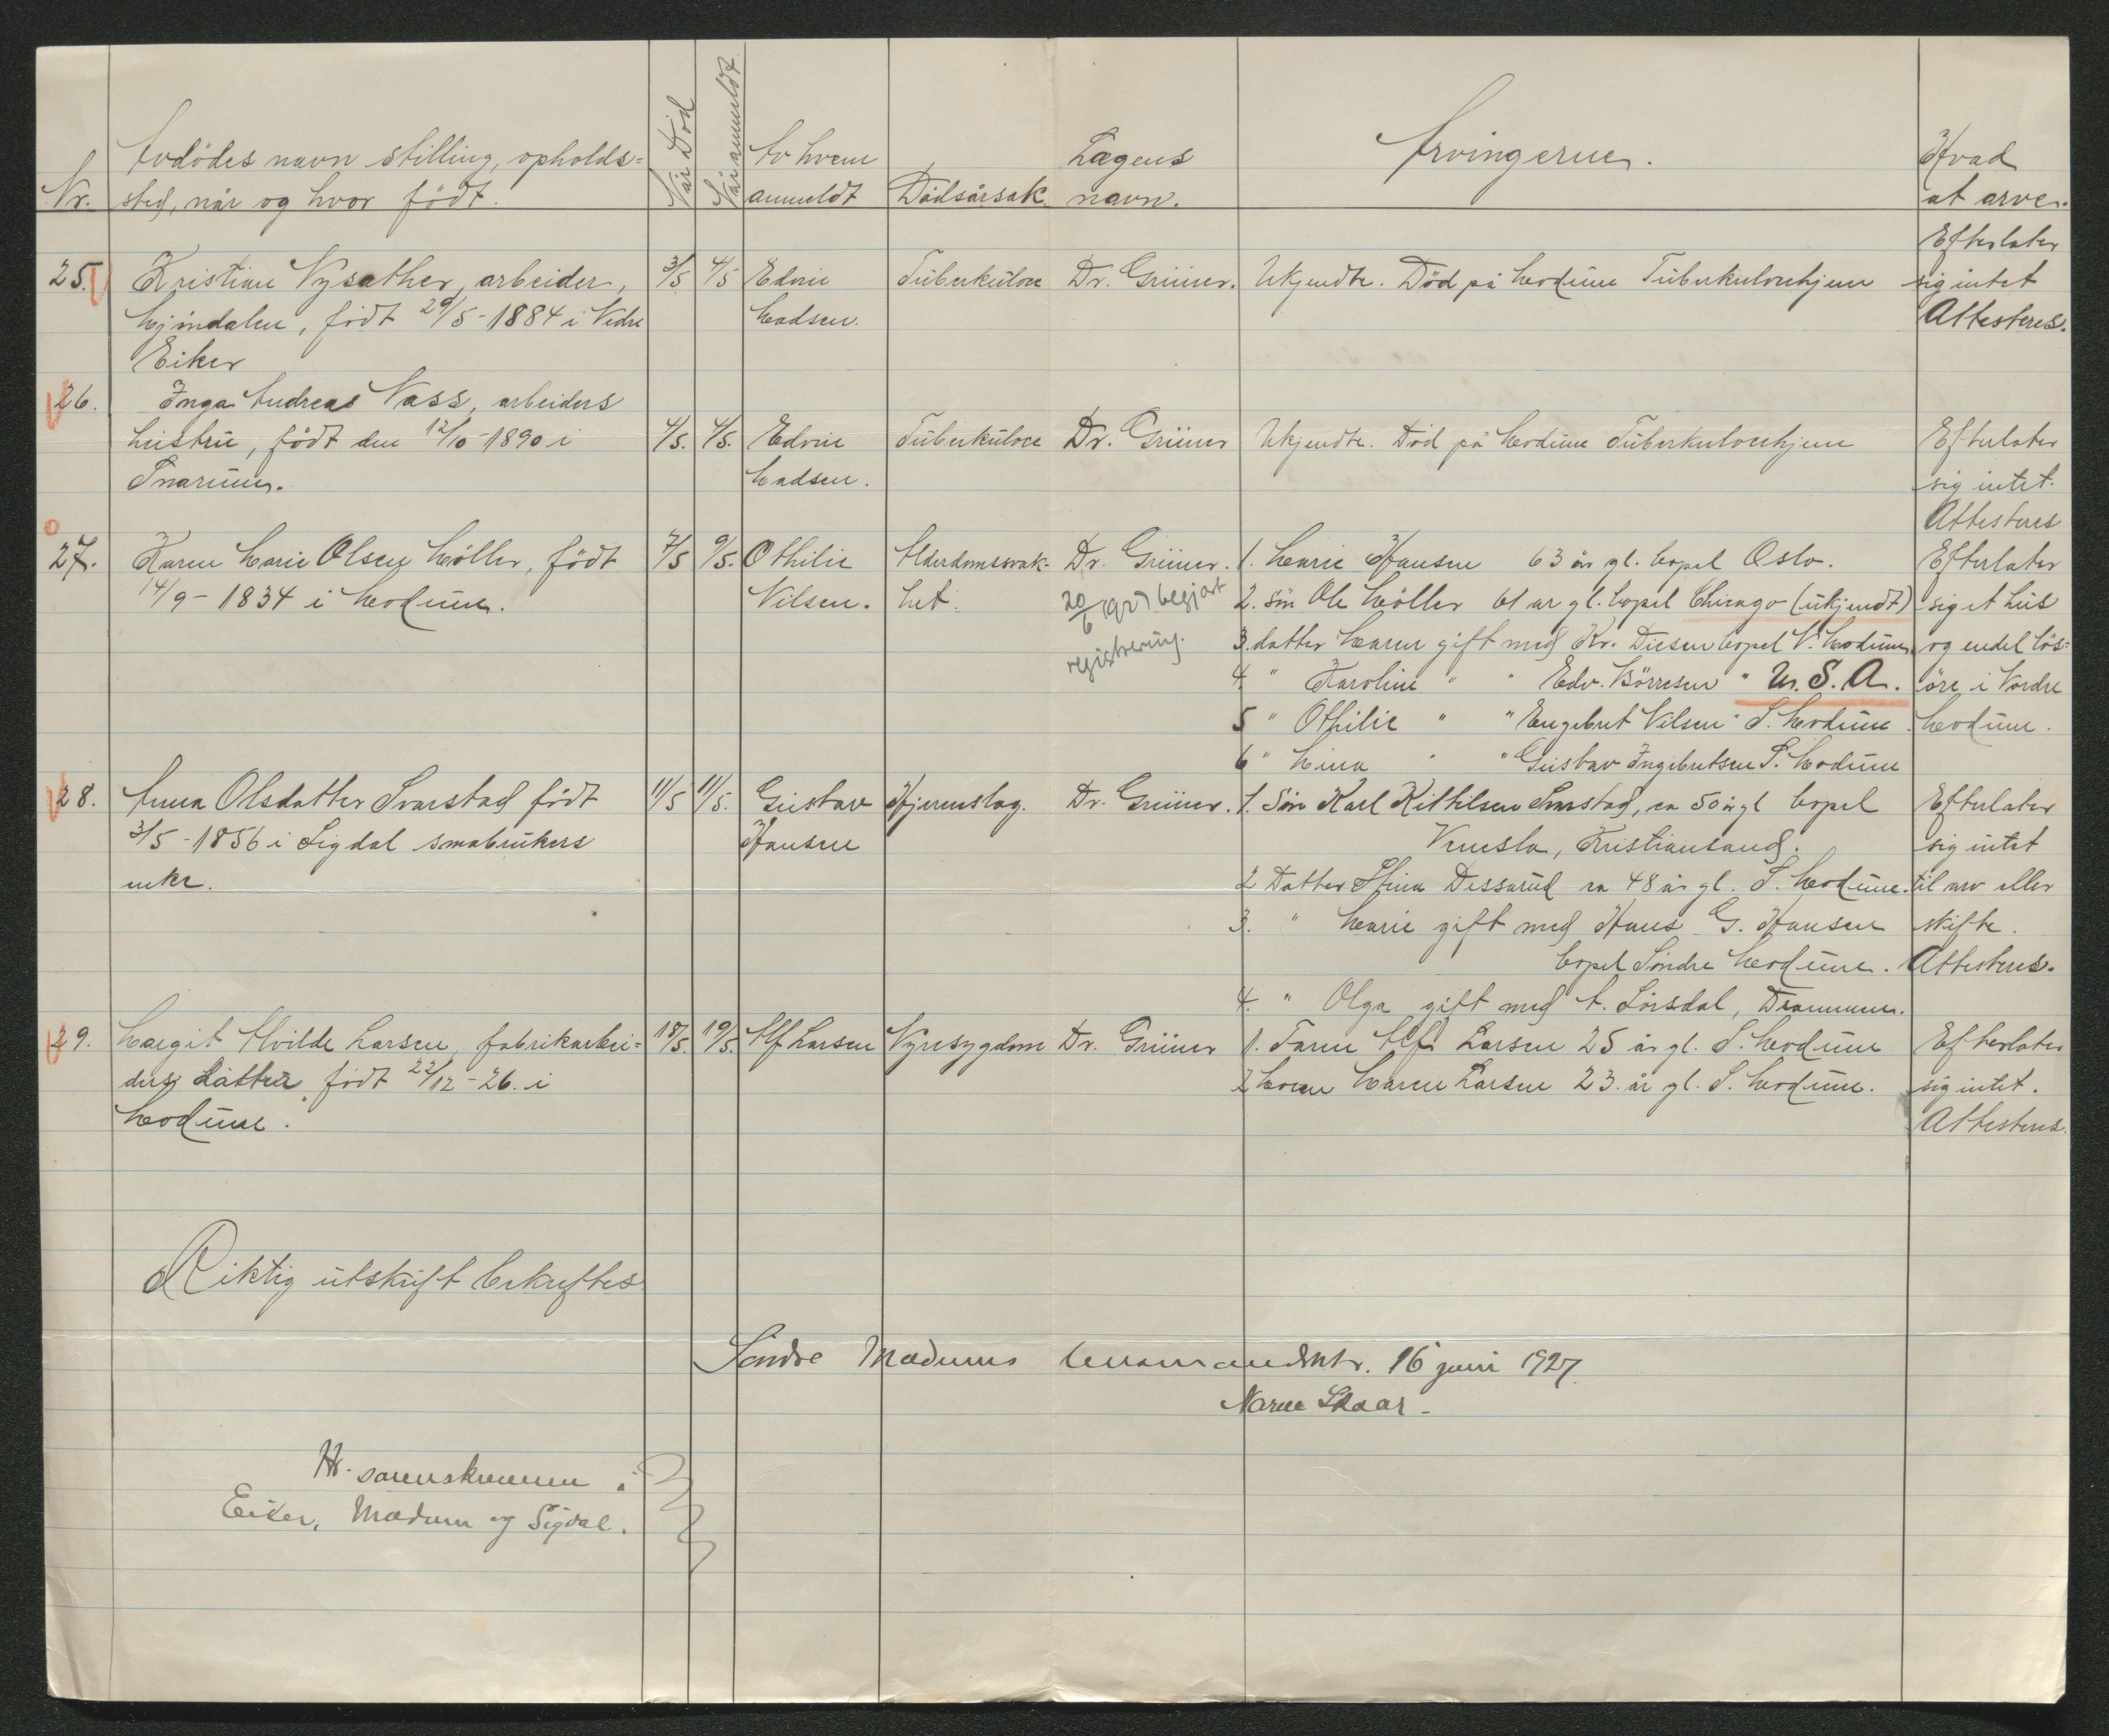 Nr. Avdödes navn stilling, opholds= Når Död Når anmeldt Av hvem Lægens Arvingerne. Hvad
sted, når og hvor födt. anmeldt Dödsårsak navn. at arve.
Efterlater
25. Kristian Nysæther, arbeider, 3/5 4/5 Edvin Tuberkulose Dr. Grüner. Ukjendte. Död på Modum Tuberkulosehjem sig intet
Mjöndalen, födt 29/5-1884 i Nedre Madsen. Attesteres.
Eiker
26. Inga Andreas Nass, arbeiders
hustru, födt den 12/10-1890 i 4/5. 4/5. Edvin Tuberkulose Dr. Grüner Ukjendte. Död på Modum Tuberkulosehjem Efterlater
Snarum. Madsen. sig intet.
Attesteres
27. Karen Marie Olsen Möller, födt 7/5 9/5. Othilie Alderdomssvak- Dr. Grüner. 1. Marie Hansen 63 år gl. bopel Oslo. Efterlater
14/9-1834 i Modum. Nilsen. het. 20/6 1927 begjært 2. sön Ole Möller 61 år gl. bopel Chicago (ukjendt) sig et hus
registrering. 3. datter Maren gift med Kr. Diesen bopel N. Modum. og endel lös=
4. " Karoline " " Edv. Börresen " U. S. A. öre i Nordre
5 " Othilie " " Engebret Nilsen " S. Modum. Modum.
6 " Mina " " Gustav Ingebretsen S. Modum
28. Anna Olsdatter Svarstad födt 11/5 11/5. Gustav Hjerneslag. Dr. Grüner. 1. Sön Karl Kittilsen Svarstad, ca 50 år gl bopel Efterlater
3/5-1856 i Sigdal småbrukers Hansen Vennesla, Kristiansand. sig intet
enke. 2 Datter Stina Dessarud ca 48 år gl. S. Modum. til arv eller
3. " Marie gift med Hans G. Hansen skifte.
bopel Söndre Modum. Attesteres.
4. " Olga gift med A. Lörsdal, Drammen.
29. Margit Alvilde Larsen, fabrikarbei= 18/5. 19/5. Alf Larsen Nyresygdom Dr. Grüner 1. Faren Alf Larsen 25 år gl. S. Modum Efterlater
ders datter födt 22/12-26. i 2 Moren Maren Larsen 23. år gl. S. Modum. sig intet.
Modum. Attesteres.
Riktig utskrift bekreftes.
Söndre Modums lensmandsktr. 16 juni 1927.
Narve Skaar.
Hr. sorenskriveren i
Eiker, Modum og Sigdal.